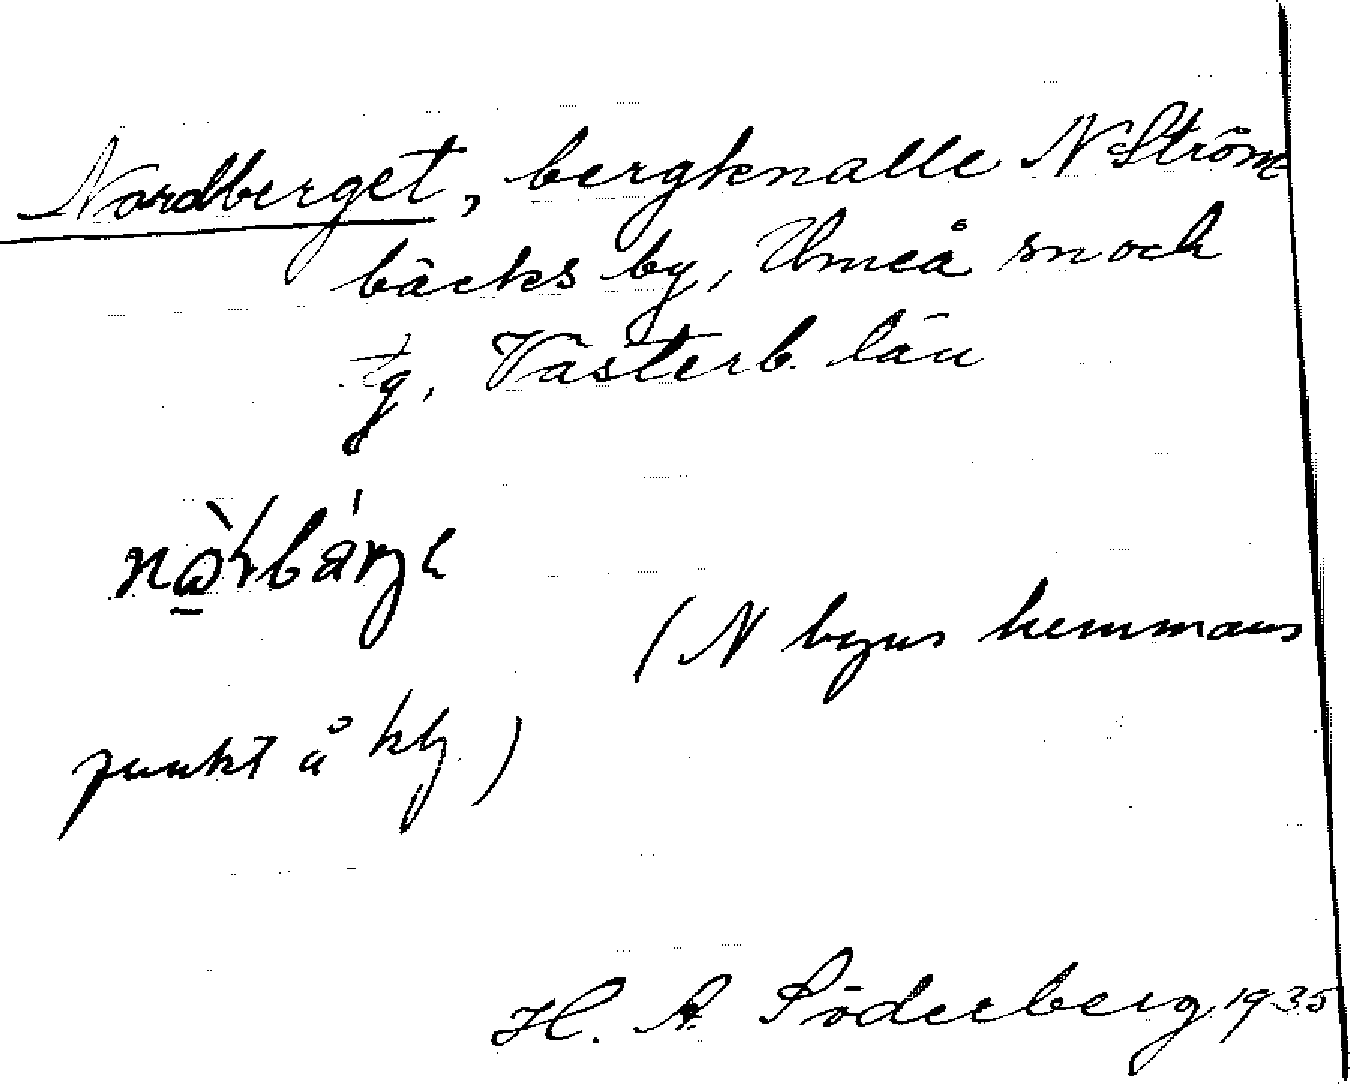 Nordberget, bergknalle N Ström
bäcks by, Umeå sn och
tg, Västerb. län
(N byns hemmans
punkt å kbl)
H. A. Söderberg 1935